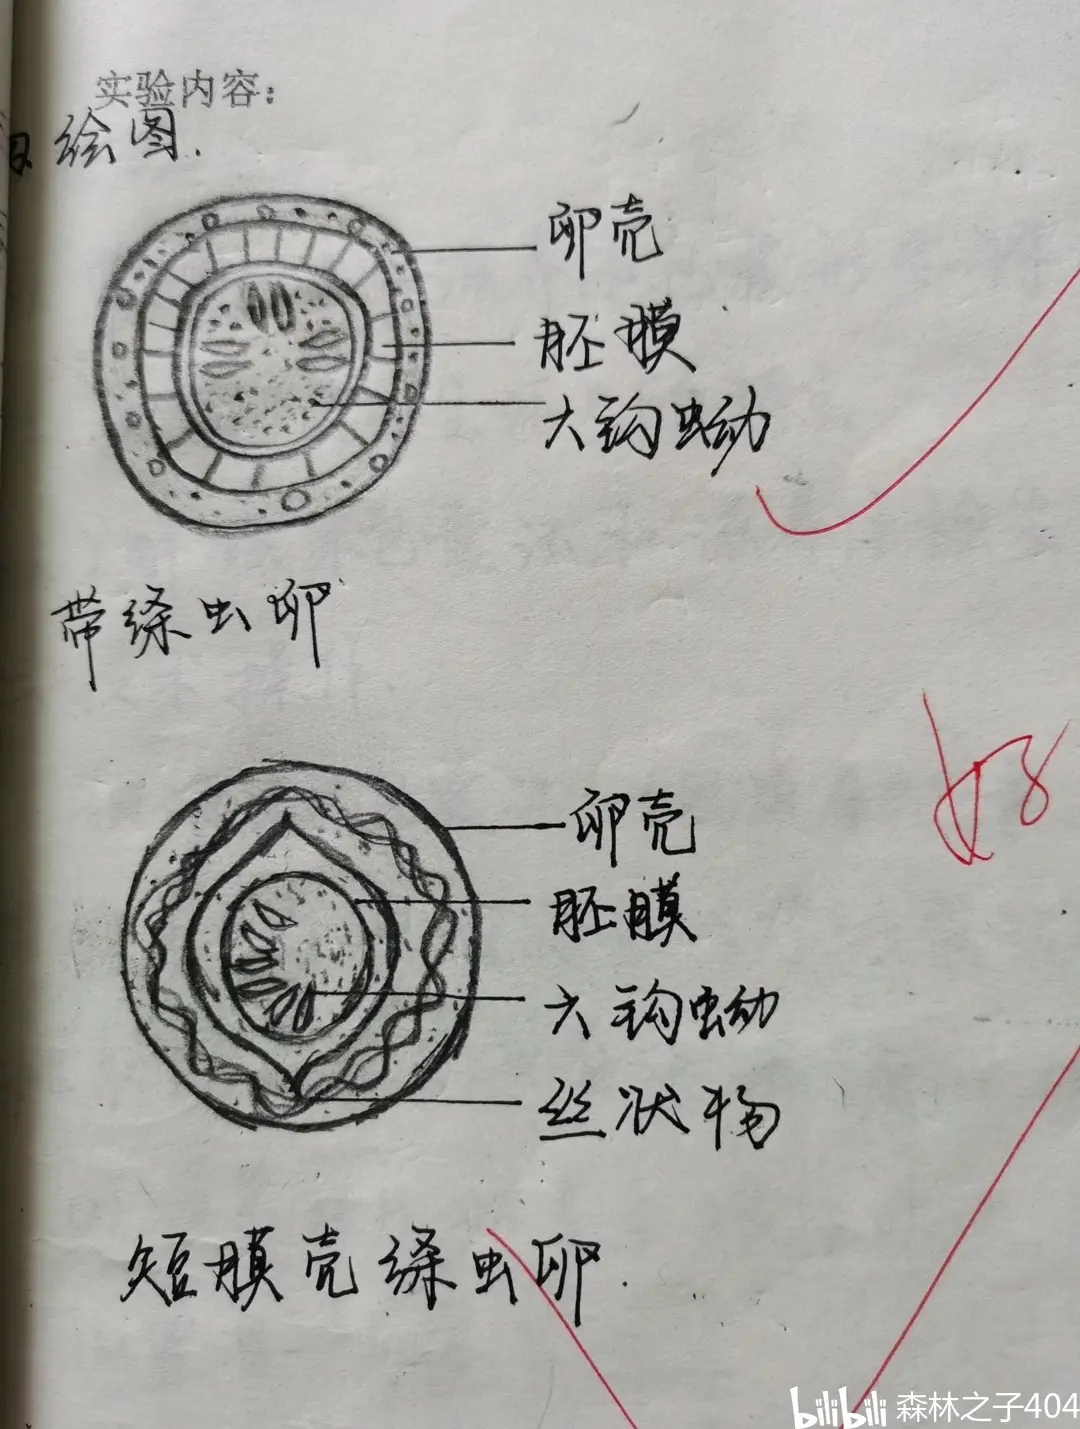 实验内容：
绘图.
卵壳
胚膜
六钩虫幼
带绦虫卵
好
卵壳
胚膜
六钩虫幼
丝状物
短膜壳绦虫卵.
bilibili 森林之子404